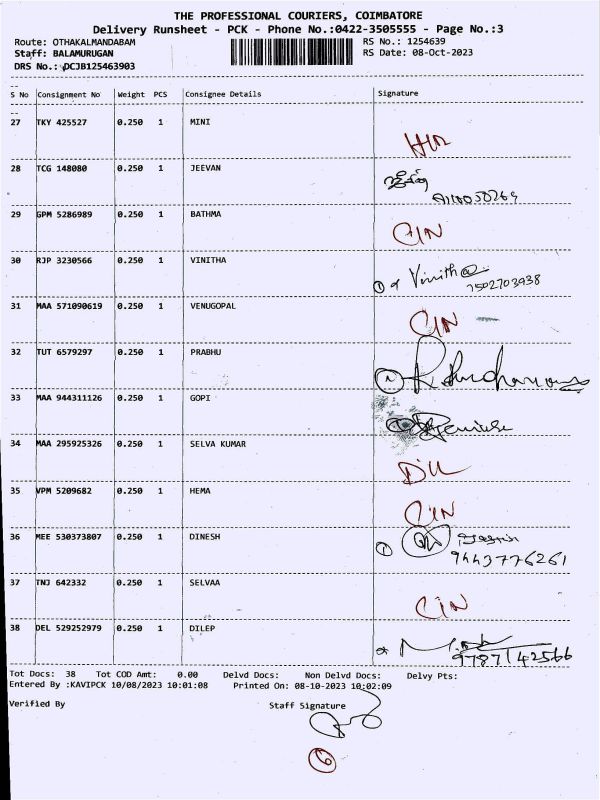 THE PROFESSIONAL COURIERS, COIMBATORE
Delivery Runsheet - PCK - Phone No.:0422-3505555 - Page No.:3
Route: OTHAKALMANDABAM
RS No.: 1254639
Staff: BALAMURUGAN
RS Date: 08-Oct-2023
DRS No.: PCJB125463903
S No Consignment No Weight PCS Consignee Details Signature
27 TKY 425527 0.250 1 MINI
28 TCG 148080 0.250 1 JEEVAN
29 GPM 5286989 0.250 1 BATHMA
CIN
30 RJP 3230566 0.250 1 VINITHA
Vinitha
7502703938
31 MAA 571090619 0.250 1 VENUGOPAL
CIN
32 TUT 6579297 0.250 1 PRABHU
33 MAA 944311126 0.250 1 GOPI
34 MAA 295925326 0.250 1 SELVA KUMAR
35 VPM 5209682 0.250 1 HEMA
CIN
36 MEE 530373807 0.250 1 DINESH
9443776261
37 TNJ 642332 0.250 1 SELVAA
CIN
38 DEL 529252979 0.250 1 DILEP
9787142566
Tot Docs: 38 Tot COD Amt: 0.00 Delvd Docs: Non Delvd Docs: Delvy Pts:
Entered By :KAVIPCK 10/08/2023 10:01:08 Printed On: 08-10-2023 10:02:09
Verified By Staff Signature
6